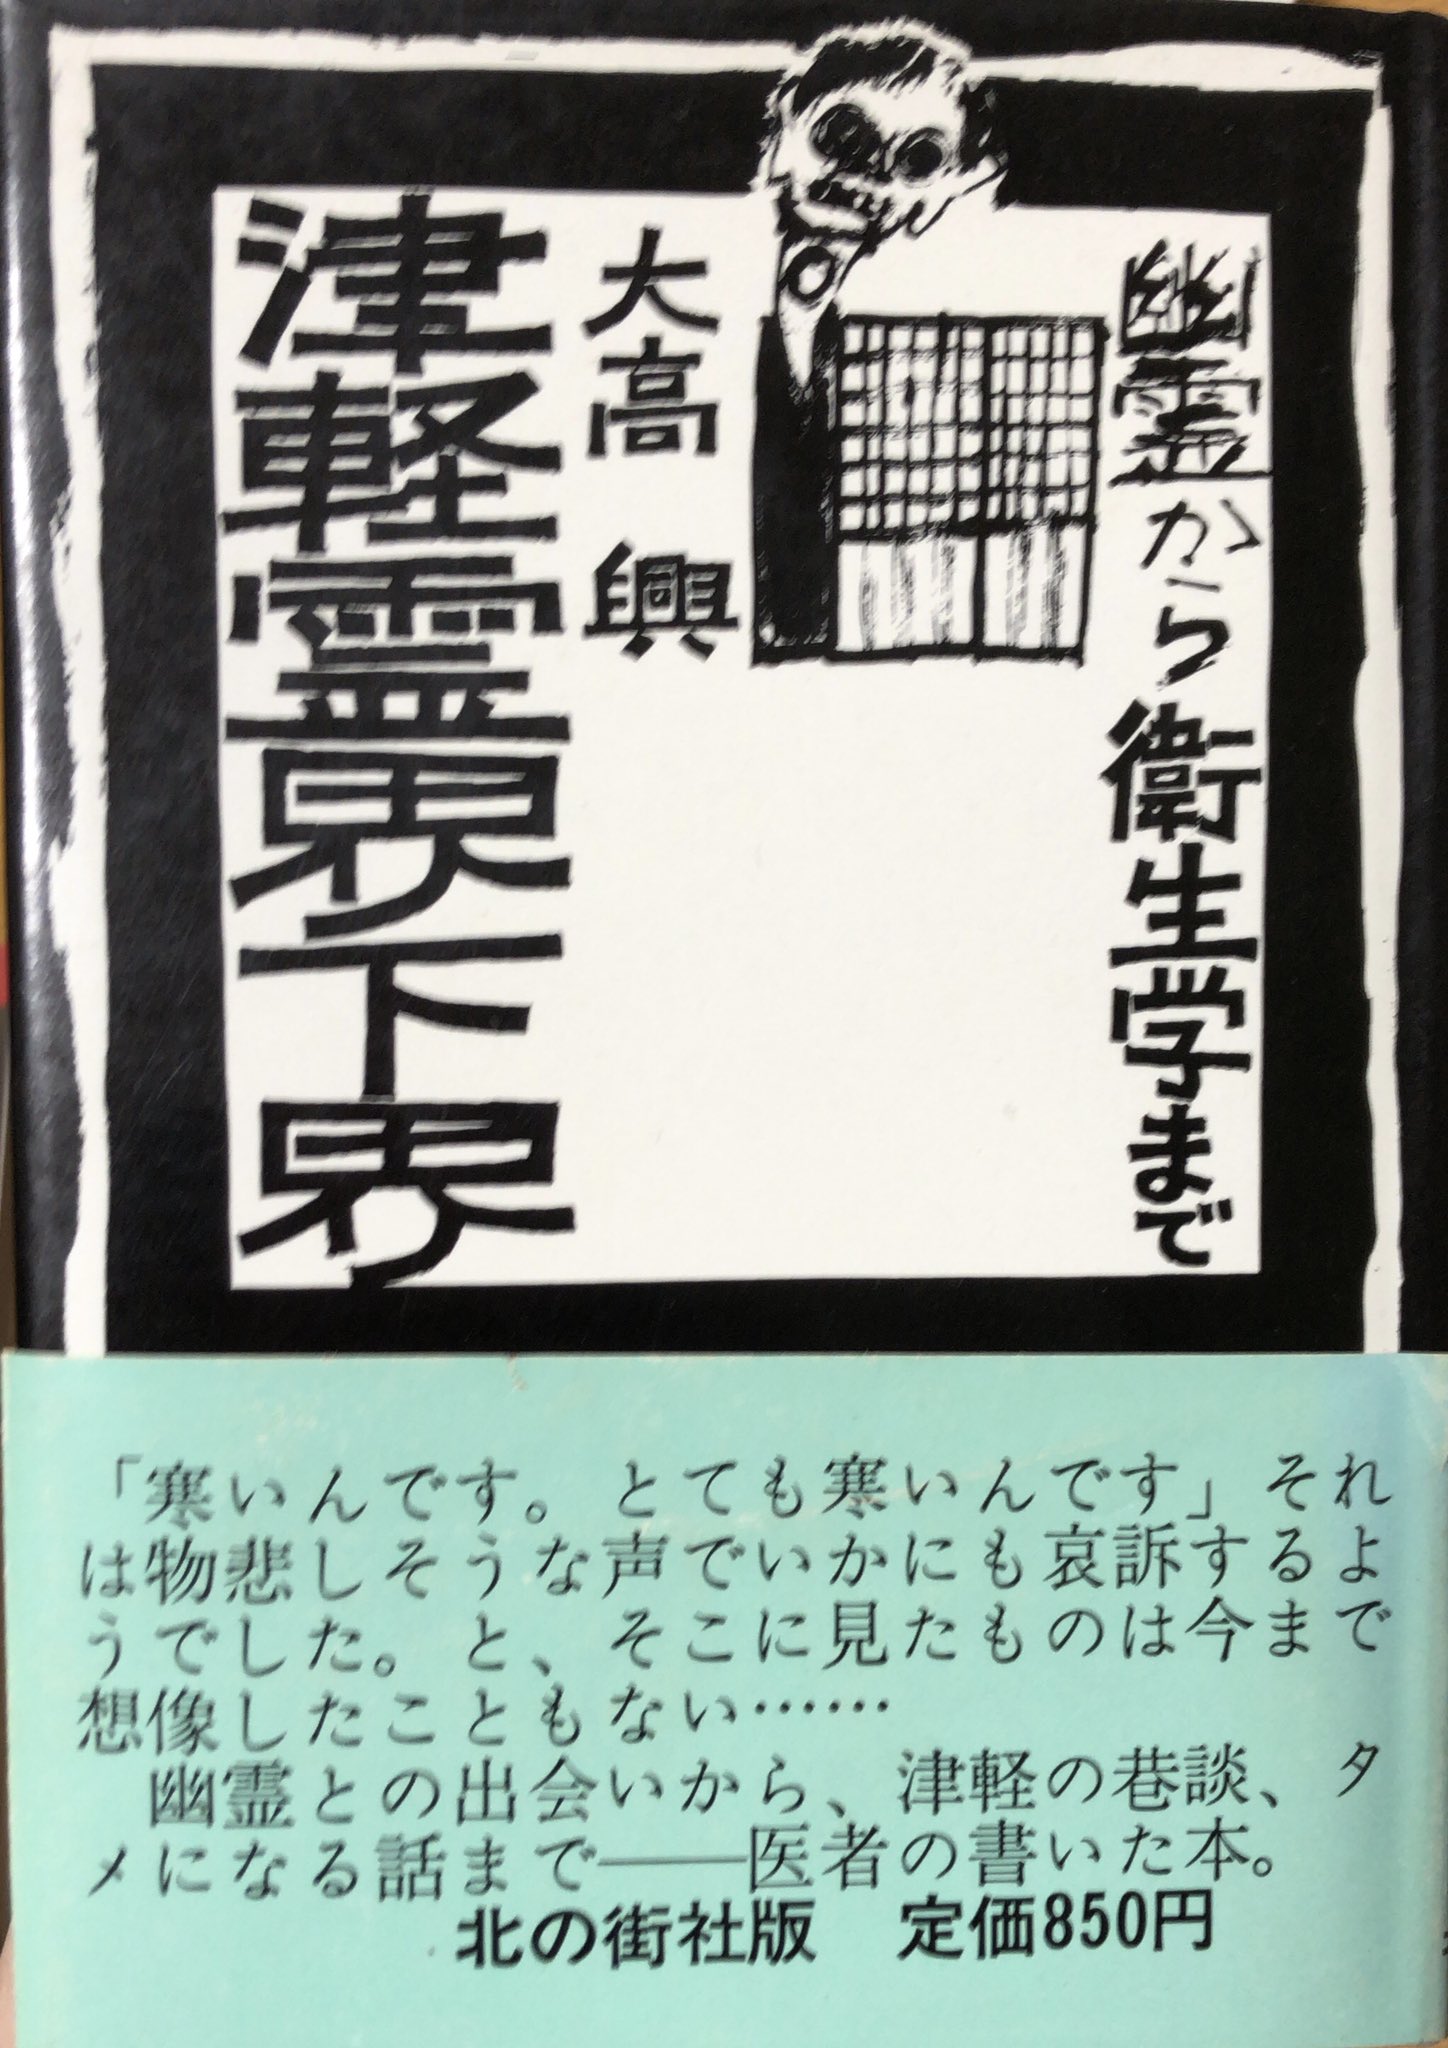 幽霊から衛生学まで
大高 興
津軽霊界下界
「寒いんです。とても寒いんです」それ
は物悲しそうな声でいかにも哀訴するよ
うでした。と、そこに見たものは今まで
想像したこともない……
幽霊との出会いから、津軽の巷談、タ
メになる話まで――医者の書いた本。
北の街社版 定価850円